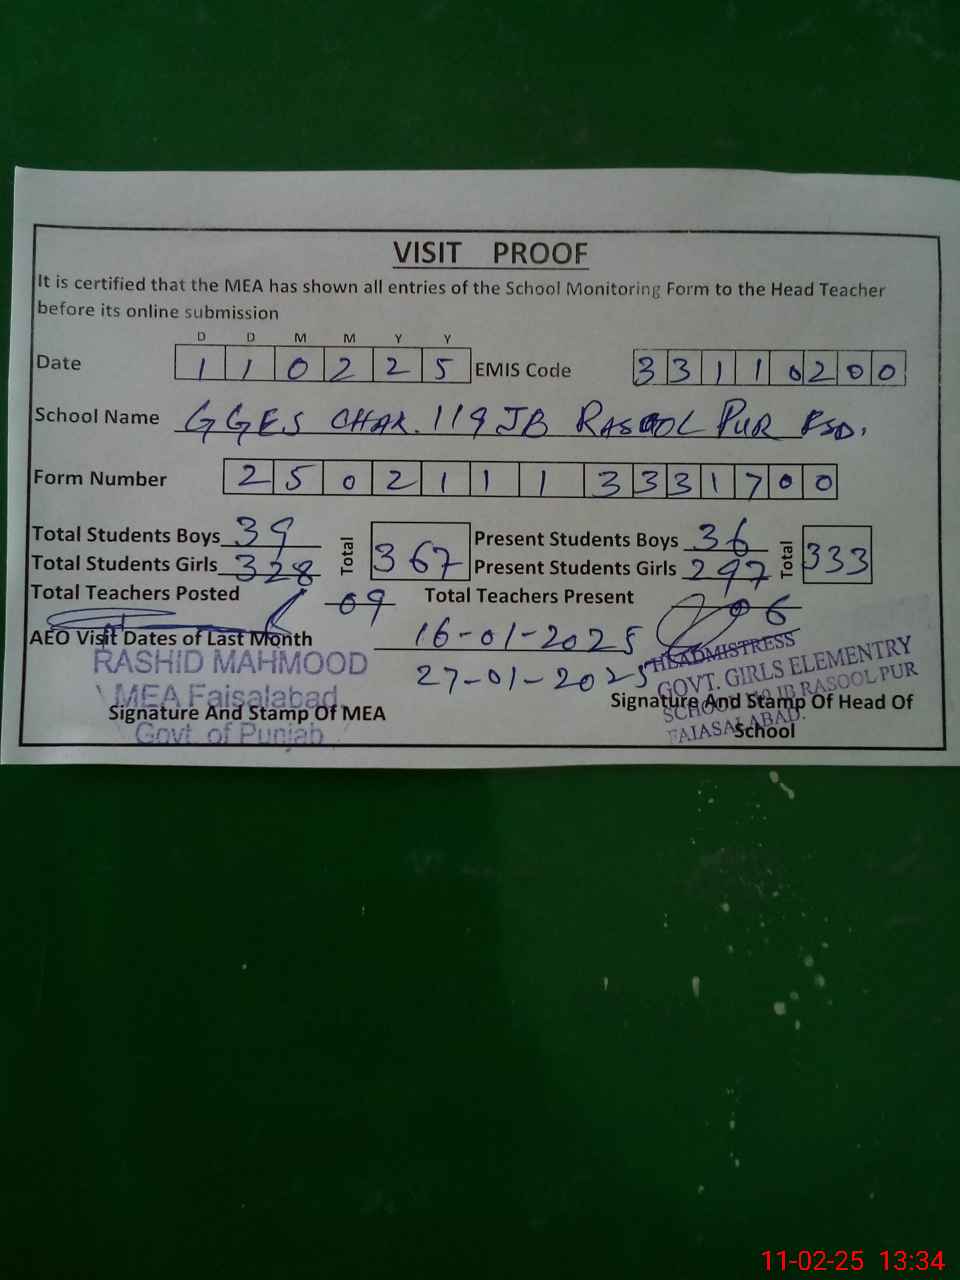 VISIT PROOF
It is certified that the MEA has shown all entries of the School Monitoring Form to the Head Teacher
before its online submission
D D M M Y Y
Date 1 1 0 2 2 5 EMIS Code 3 3 1 1 0 2 0 0
School Name GGES CHAK. 119 JB RASOOL PUR FSD.
Form Number 2 5 0 2 1 1 1 3 3 3 1 7 0 0
Total Students Boys 39 Total 367 Present Students Boys 36 Total 333
Total Students Girls 328 Present Students Girls 297
Total Teachers Posted 09 Total Teachers Present 06
AEO Visit Dates of Last Month 16-01-2025
27-01-2025
RASHID MAHMOOD
MEA Faisalabad
Govt. of Punjab
Signature And Stamp Of MEA
HEADMISTRESS
GOVT. GIRLS ELEMENTRY
SCHOOL JB RASOOL PUR
FAIASALABAD.
Signature And Stamp Of Head Of
School
11-02-25 13:34